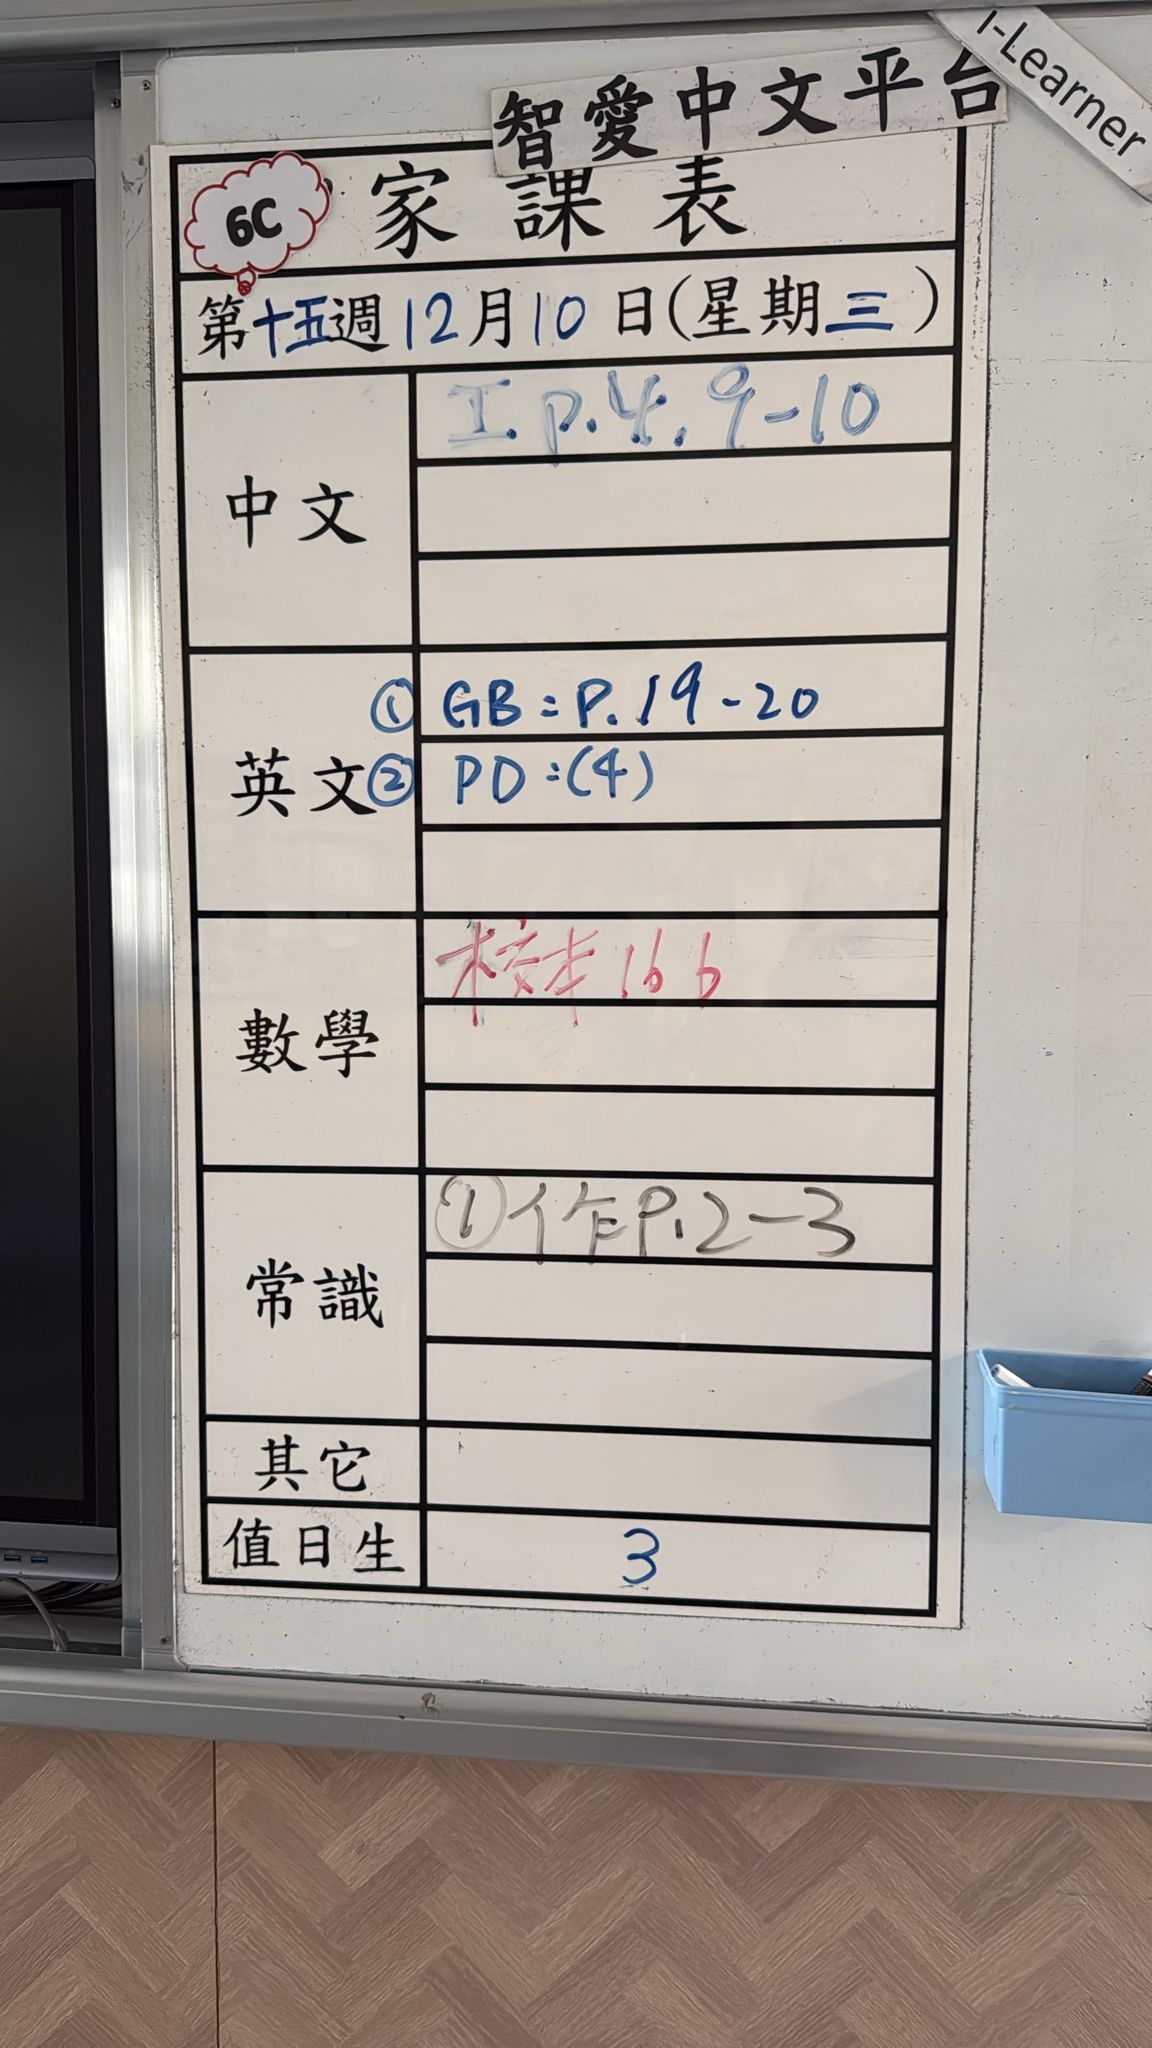 i-Learner
智愛中文平台
6C 家課表
第十五週12月10日(星期三)
中文 工.p.4,9-10
英文 ① GB:P.19-20
② PD:(4)
數學 校本16b
常識 ①作P.2-3
其它
值日生 3